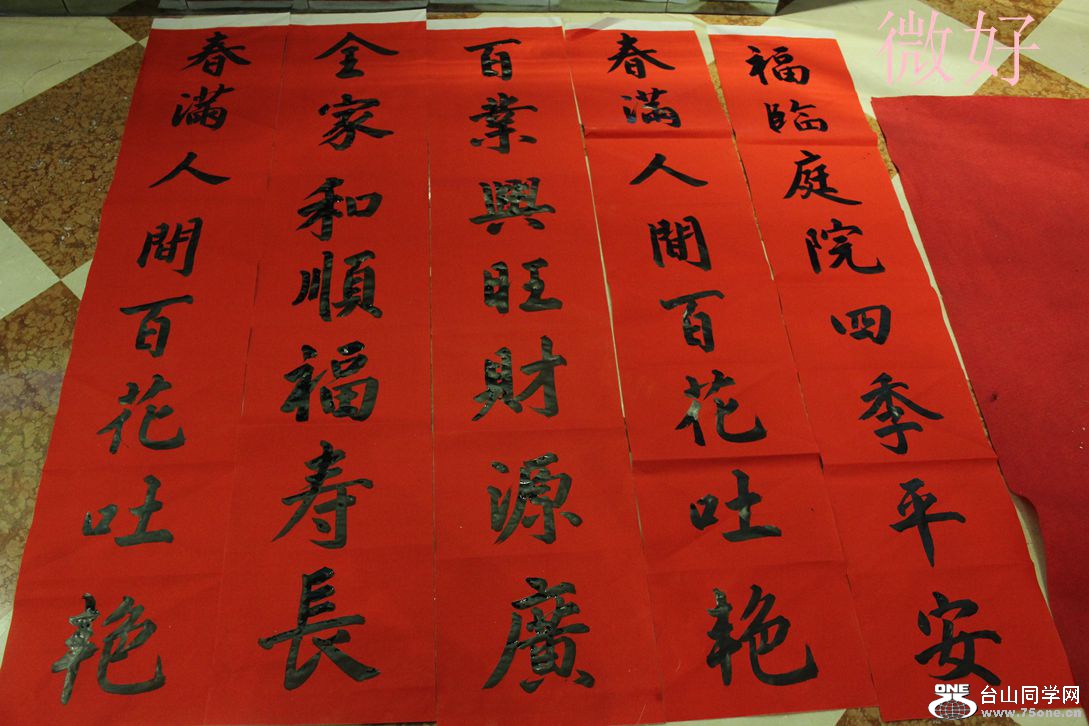 春滿人間百花吐艳
全家和順福寿長
百業興旺財源廣
春滿人間百花吐艳
福臨庭院四季平安
微好
ONE
台山同学网
www.75one.cn